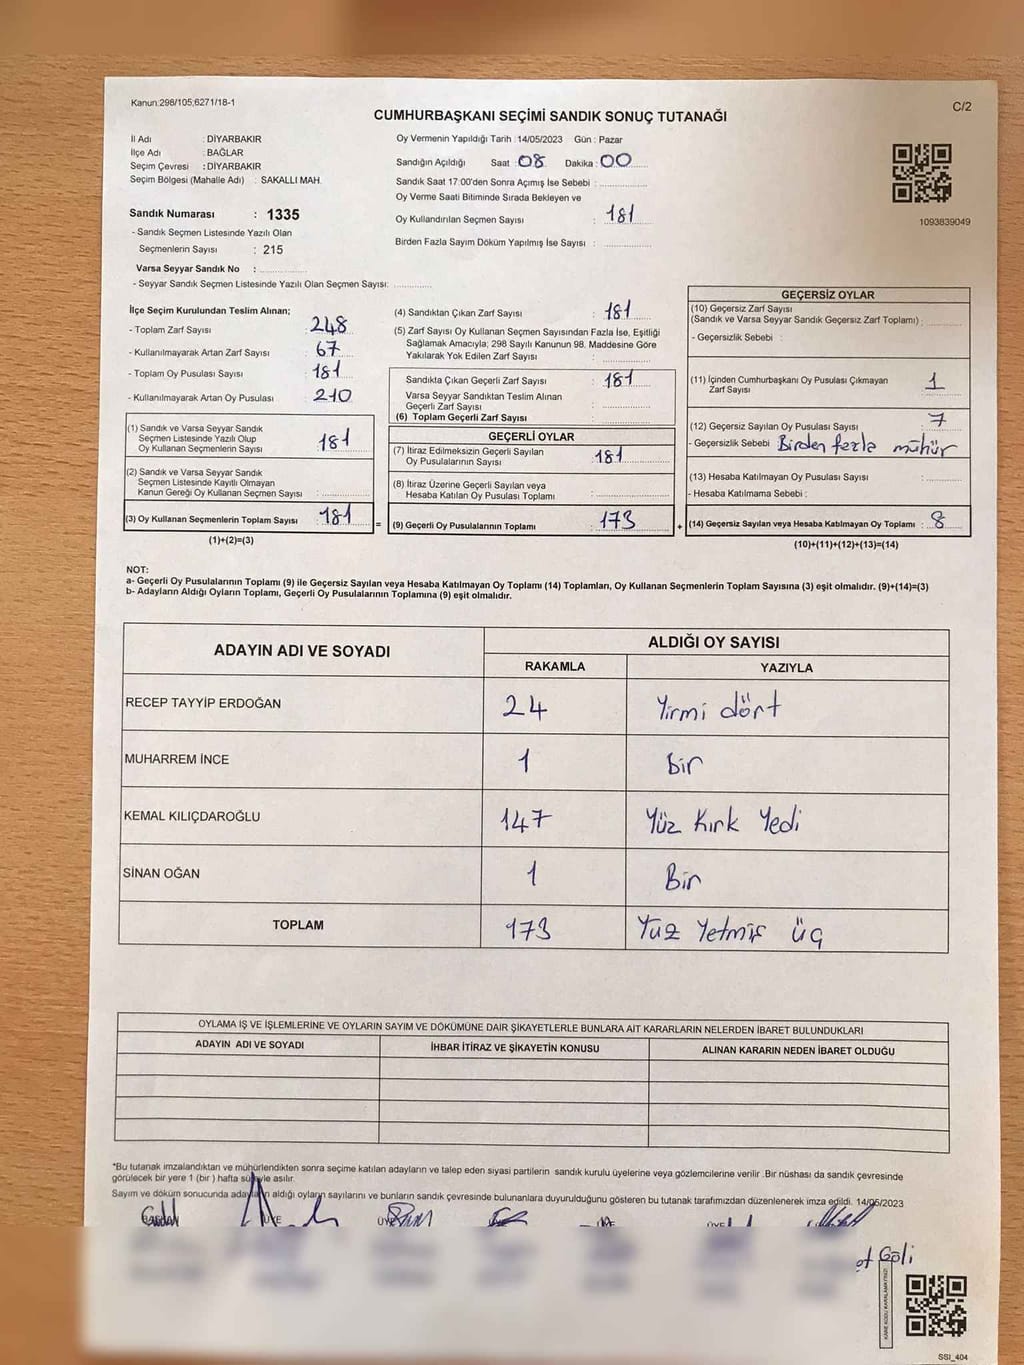 Kanun:298/105;6271/18-1
C/2
CUMHURBAŞKANI SEÇİMİ SANDIK SONUÇ TUTANAĞI
İl Adı : DİYARBAKIR
İlçe Adı : BAĞLAR
Seçim Çevresi : DİYARBAKIR
Seçim Bölgesi (Mahalle Adı) : SAKALLI MAH.
Sandık Numarası : 1335
- Sandık Seçmen Listesinde Yazılı Olan
Seçmenlerin Sayısı : 215
Varsa Seyyar Sandık No :
- Seyyar Sandık Seçmen Listesinde Yazılı Olan Seçmen Sayısı:
Oy Vermenin Yapıldığı Tarih : 14/05/2023 Gün : Pazar
Sandığın Açıldığı Saat : 08 Dakika : 00
Sandık Saat 17:00'den Sonra Açımış İse Sebebi :
Oy Verme Saati Bitiminde Sırada Bekleyen ve
Oy Kullandırılan Seçmen Sayısı : 181
Birden Fazla Sayım Döküm Yapılmış İse Sayısı :
1093839049
İlçe Seçim Kurulundan Teslim Alınan;
- Toplam Zarf Sayısı : 248
- Kullanılmayarak Artan Zarf Sayısı : 67
- Toplam Oy Pusulası Sayısı : 181
- Kullanılmayarak Artan Oy Pusulası : 210
(1) Sandık ve Varsa Seyyar Sandık
Seçmen Listesinde Yazılı Olup
Oy Kullanan Seçmenlerin Sayısı : 181
(2) Sandık ve Varsa Seyyar Sandık
Seçmen Listesinde Kayıtlı Olmayan
Kanun Gereği Oy Kullanan Seçmen Sayısı :
(3) Oy Kullanan Seçmenlerin Toplam Sayısı : 181
(1)+(2)=(3)
(4) Sandıktan Çıkan Zarf Sayısı : 181
(5) Zarf Sayısı Oy Kullanan Seçmen Sayısından Fazla İse, Eşitliği
Sağlamak Amacıyla; 298 Sayılı Kanunun 98. Maddesine Göre
Yakılarak Yok Edilen Zarf Sayısı :
Sandıkta Çıkan Geçerli Zarf Sayısı : 181
Varsa Seyyar Sandıktan Teslim Alınan
Geçerli Zarf Sayısı :
(6) Toplam Geçerli Zarf Sayısı :
GEÇERLİ OYLAR
(7) İtiraz Edilmeksizin Geçerli Sayılan
Oy Pusulalarının Sayısı : 181
(8) İtiraz Üzerine Geçerli Sayılan veya
Hesaba Katılan Oy Pusulası Toplamı :
= (9) Geçerli Oy Pusulalarının Toplamı : 173 +
GEÇERSİZ OYLAR
(10) Geçersiz Zarf Sayısı
(Sandık ve Varsa Seyyar Sandık Geçersiz Zarf Toplamı) :
- Geçersizlik Sebebi :
(11) İçinden Cumhurbaşkanı Oy Pusulası Çıkmayan
Zarf Sayısı : 1
(12) Geçersiz Sayılan Oy Pusulası Sayısı : 7
- Geçersizlik Sebebi Birden fazla mühür
(13) Hesaba Katılmayan Oy Pusulası Sayısı :
- Hesaba Katılmama Sebebi :
(14) Geçersiz Sayılan veya Hesaba Katılmayan Oy Toplamı : 8
(10)+(11)+(12)+(13)=(14)
NOT:
a- Geçerli Oy Pusulalarının Toplamı (9) ile Geçersiz Sayılan veya Hesaba Katılmayan Oy Toplamı (14) Toplamları, Oy Kullanan Seçmenlerin Toplam Sayısına (3) eşit olmalıdır. (9)+(14)=(3)
b- Adayların Aldığı Oyların Toplamı, Geçerli Oy Pusulalarının Toplamına (9) eşit olmalıdır.
ADAYIN ADI VE SOYADI ALDIĞI OY SAYISI
RAKAMLA YAZIYLA
RECEP TAYYİP ERDOĞAN 24 Yirmi dört
MUHARREM İNCE 1 bir
KEMAL KILIÇDAROĞLU 147 Yüz Kırk Yedi
SİNAN OĞAN 1 Bir
TOPLAM 173 Yuz Yetmiş üç
OYLAMA İŞ VE İŞLEMLERİNE VE OYLARIN SAYIM VE DÖKÜMÜNE DAİR ŞİKAYETLERLE BUNLARA AİT KARARLARIN NELERDEN İBARET BULUNDUKLARI
ADAYIN ADI VE SOYADI İHBAR İTİRAZ VE ŞİKAYETİN KONUSU ALINAN KARARIN NEDEN İBARET OLDUĞU
*Bu tutanak imzalandıktan ve mühürlendikten sonra seçime katılan adayların ve talep eden siyasi partilerin sandık kurulu üyelerine veya gözlemcilerine verilir .Bir nüshası da sandık çevresinde
görülecek bir yere 1 (bir ) hafta süreyle asılır.
Sayım ve döküm sonucunda adayların aldığı oyların sayılarını ve bunların sandık çevresinde bulunanlara duyurulduğunu gösteren bu tutanak tarafımızdan düzenlenerek imza edildi. 14/05/2023
BAŞKAN ÜYE ÜYE ÜYE ÜYE
Göli
SSİ_404